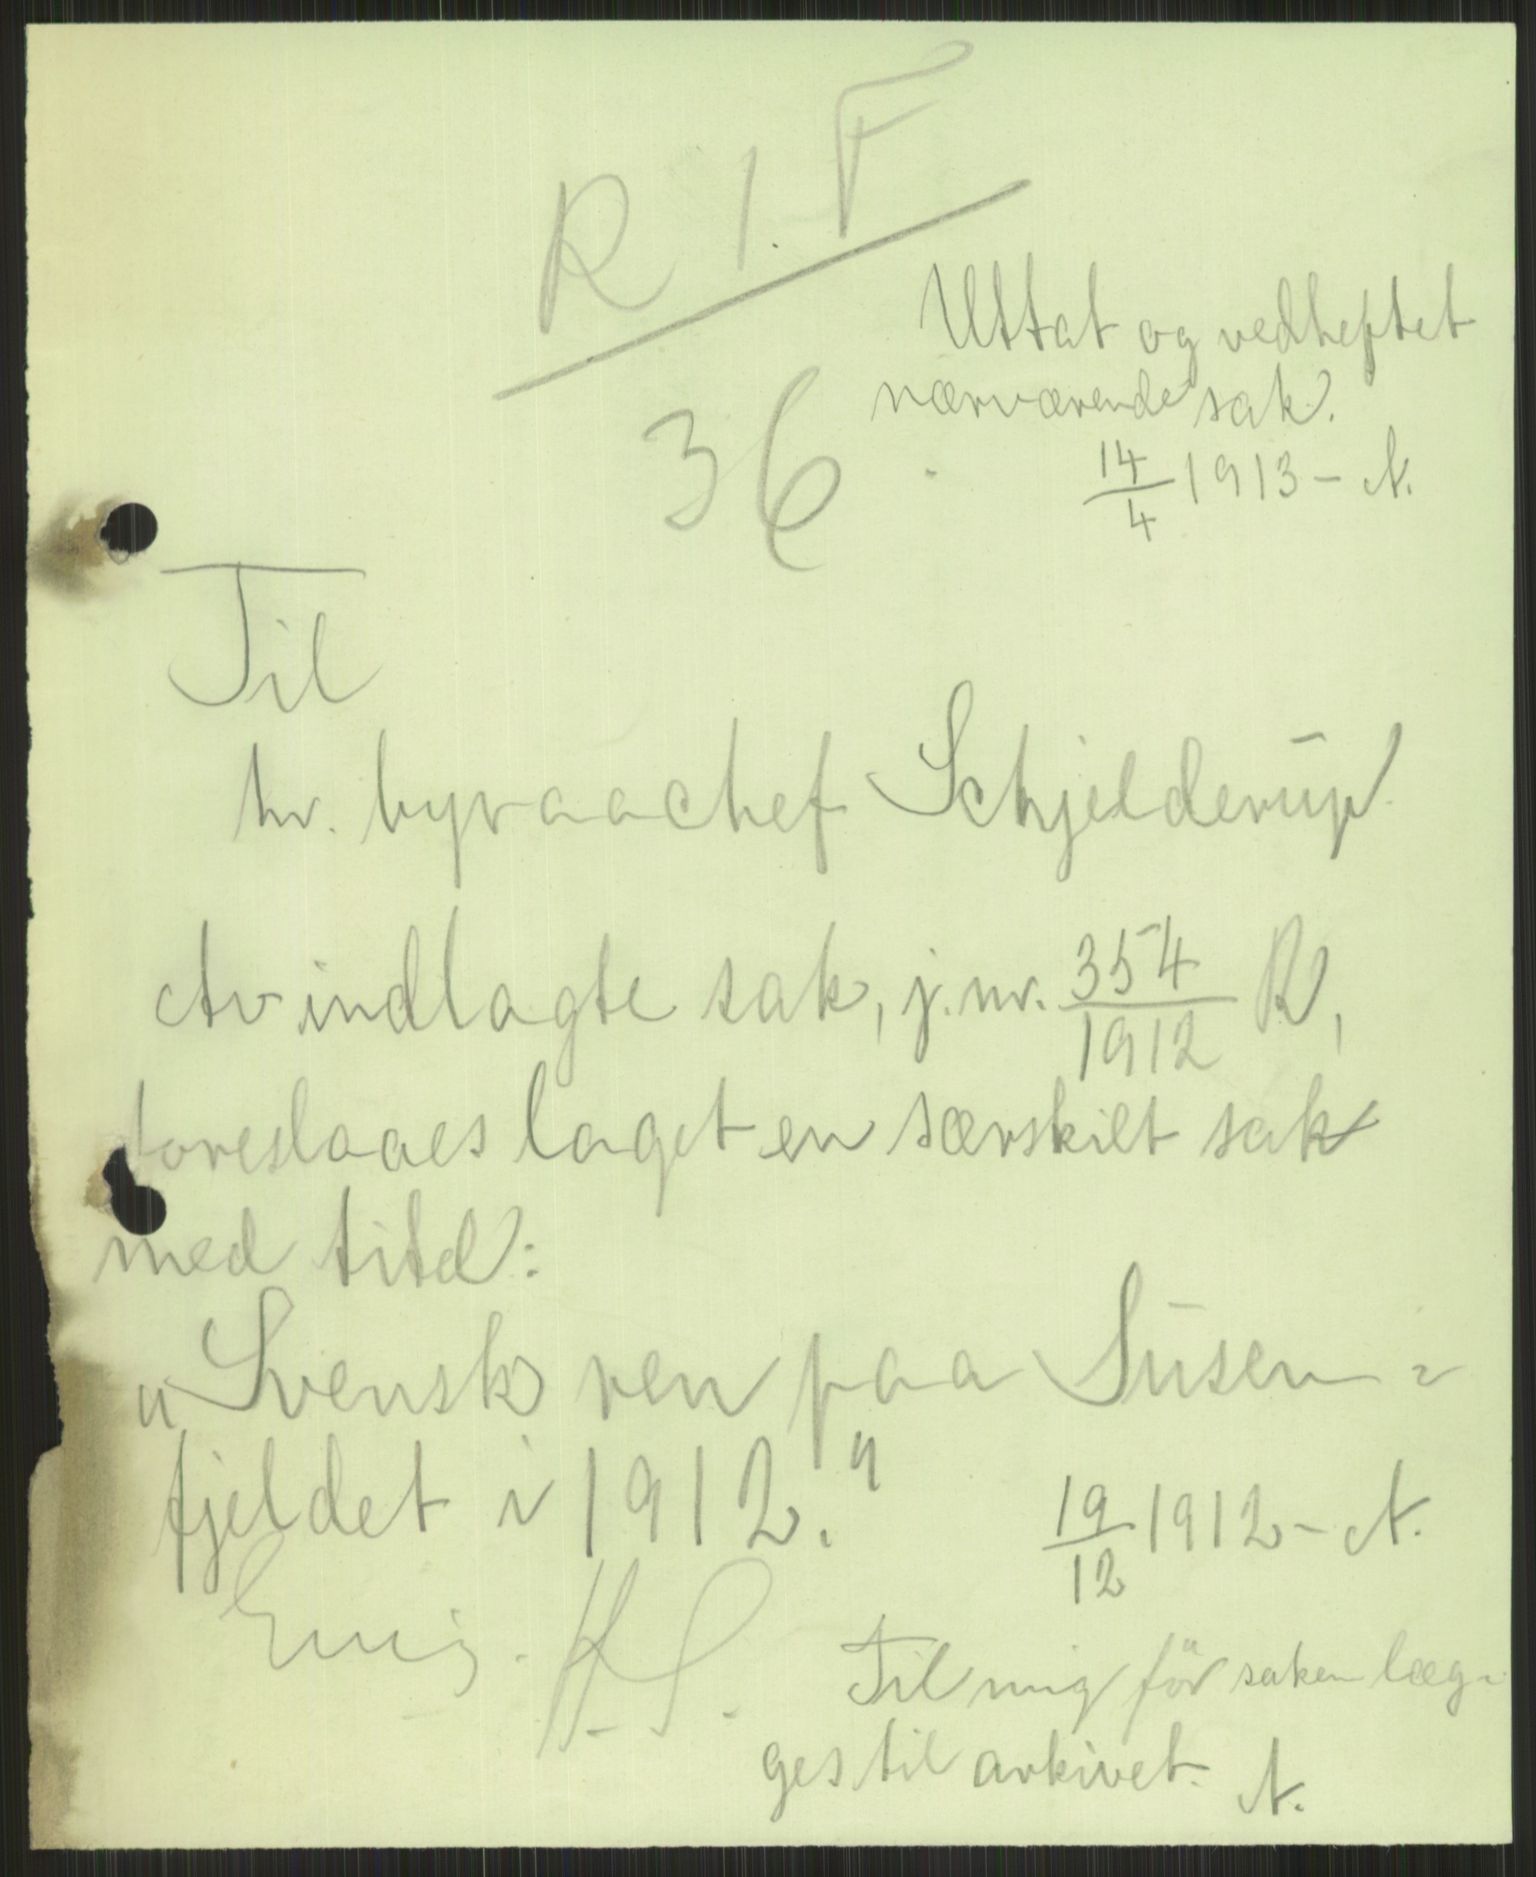 R 1. F
36
Uttat og vedheftet
nærværende sak.
14/4 1913 - A.
Til
hr. byraachef Schjelderup
Av indlagte sak, j.nr. 354/1912 R,
foreslaaes laget en særskilt sak
med titel:
„Svensk ren paa Susen-
fjeldet i 1912."
19/12 1912 - A.
Enig. H.S.
Til mig før saken læg-
ges til arkivet. A.